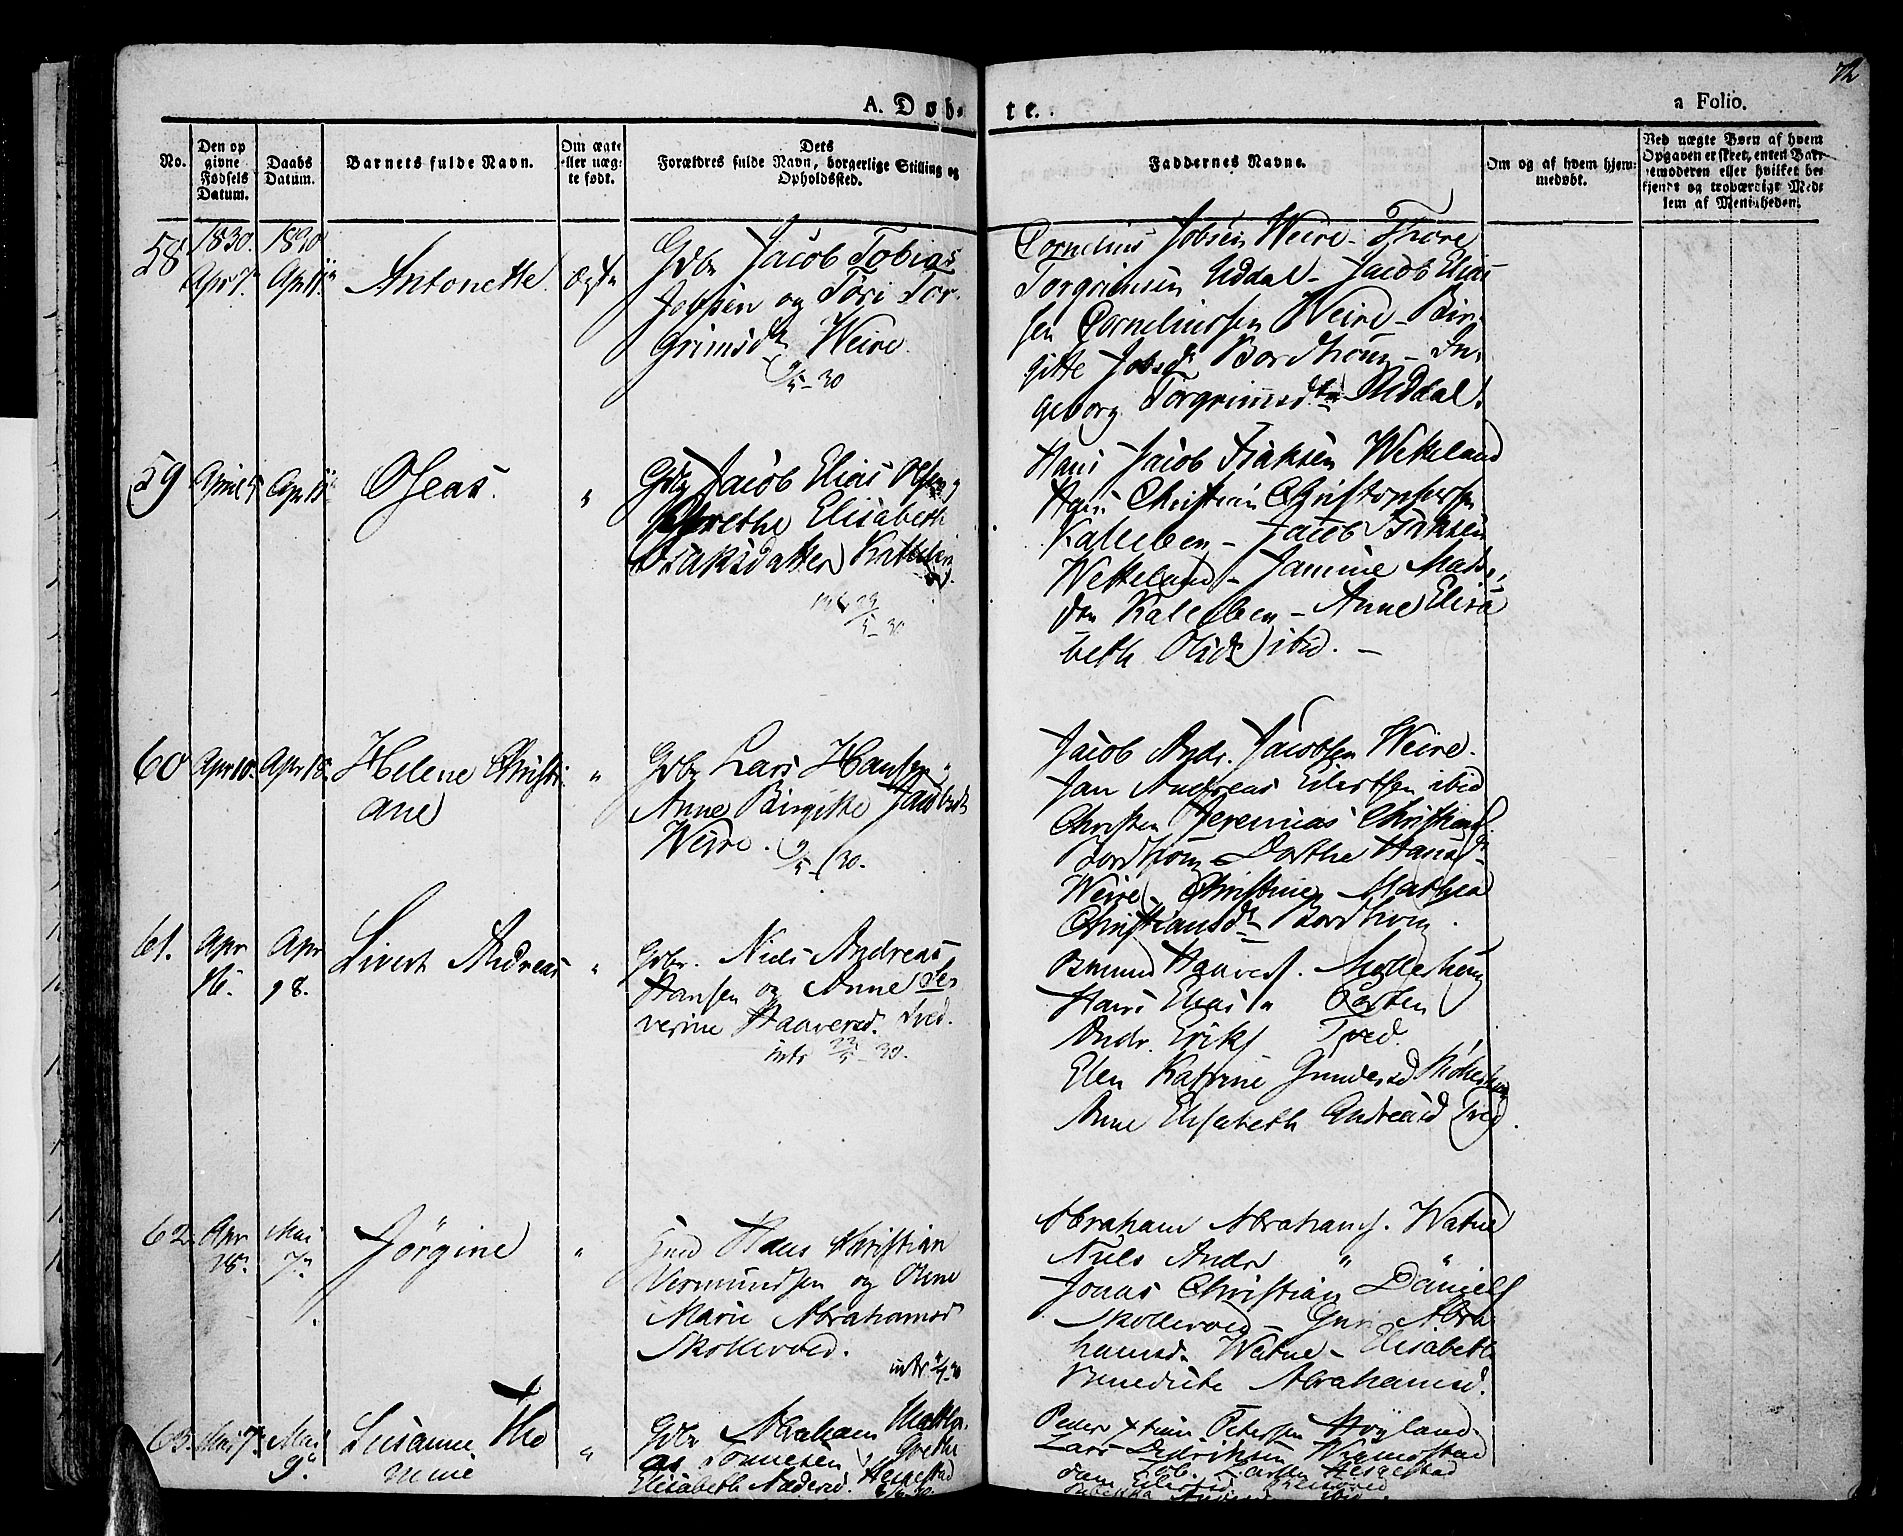 72
A. Døb-
te.
a Folio.
No.
Den op
givne
Fødsels
Datum.
Daabs
Datum.
Barnets fulde Navn.
Om ægte
eller uæg-
te født.
Dets
Forældres fulde Navn, borgerlige Stilling og
Opholdssted.
Faddernes Navne.
Om og af hvem hjem-
medøbt.
Ved uægte Børn af hvem
Opgaven er skeet, enten Bar-
nemoderen eller hvilket be-
kjendt og troværdigt Med-
lem af Menigheden.
58
1830.
Apr 7de
1830
Apr 11te
Antonette
Ægte
Gdbr Jacob Tobias
Jobsen og Tori Tor-
Grimsdtr Weire.
9/5-30
Cornelius Jobsen Weire - Thore
Torgrimsen Uddal - Jacob Elias
sen Corneliussen Weire - Bir-
gitte Jobsdtr Bordhoum - In-
geborg Torgrimsdtr Uddal.
59
April 5
Apr 11te
Oseas.
"
Gdbr Jacob Elias Olsen
Grethe Elisabeth
Isaksdatter
23/5-30
Hans Jacob Isaksen Wetteland
Hans Christian Christophersen
Kalleben - Jacob Isaksen
Wetteland - Jamine Mads-
dtr Kalleben - Anne Elisa
beth Olsdtr ibid. -
60
Apr 10.
Apr 18.
Helene Christi-
ane
"
Gdbr Lars Hansen
Anne Birgitte Jacobsdtr
Weire.
9/5-30.
Jacob Andr. Jacobsen Weire.
Jan Andreas Eilertsen ibid
Christen Jeremias Christians.
Bordhoum - Dorthe Hansdtr
Weire - Christine Mathea
Christiansdtr Bordhoum.
61.
Apr
16.
Apr
18.
Sivert Andreas
"
Gdbr. Niels Andreas
Hansen og Anne Se-
verine Haaversd. Tved.
intr 23/5-30.
Omund Haavers. Møllehoug
Hans Elias " Carten
Andr. Eriks. Tved.
Elen Katrine Gundersd Møllehoug
Anne Elisabeth Andreasd Tved.
62
Apr
18.
Mai
7de
Jørgine
"
Hans Christian
Vermundsen og Olene
Marie Abrahamsd
Skollevold.
intr
Abraham Abrahams. Watne
Niels Andr " "
Jonas Christian Daniels
Skollevold - Abra
hamsd. Watne - Elisabeth
Benedicte Abrahamsd.
63.
Mai 7de
Mai
9de
Susanne Tho
mine
"
Gdbr Abraham Matthi-
as Tønnesen Grethe
Elisabeth Andersd. Heigestad
Peder Petersen Høyland
Lars Didriksen